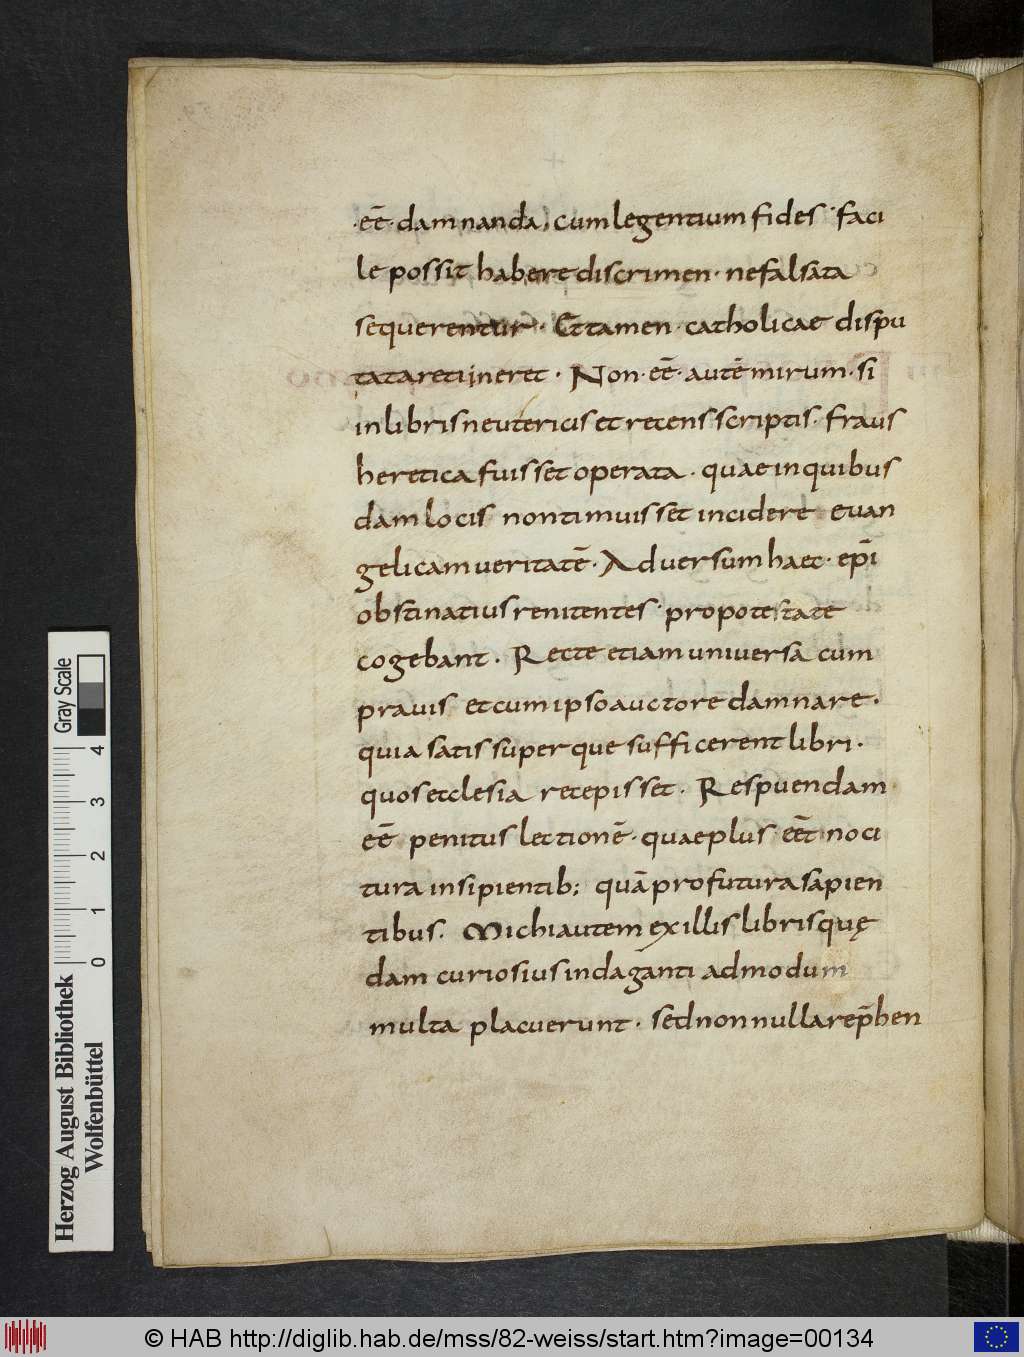 ·eē· damnanda, cum legentium fides· faci
le possit habere discrimen· ne falsata
sequerentur· Et tamen· catholicae dispu
tata retijneret· Non· eē· autē mirum· si
in libris neutericis et recens scriptis· fraus
heretica fuisset operata· quae in quibus
dam locis non timuisset incidere euan
gelicam ueritatē· Aduersum haec· ep̄i
obstinatius renitentes· pro potestate
cogebant· Recte etiam uniuersā cum
prauis et cum ipso auctore damnare·
quia satis superque sufficerent libri·
quos etclesia recepisset· Respuendam
eē penitus lectionē· quae plus eēt noci
tura insipientib; quā profutura sapien
tibus· Michi autem ex illis libris quę
dam curiosius indaganti admodum
multa placuerunt· sed non nulla rep̄hen
Gray Scale
0 1 2 3 4
Herzog August Bibliothek
Wolfenbüttel
© HAB http://diglib.hab.de/mss/82-weiss/start.htm?image=00134